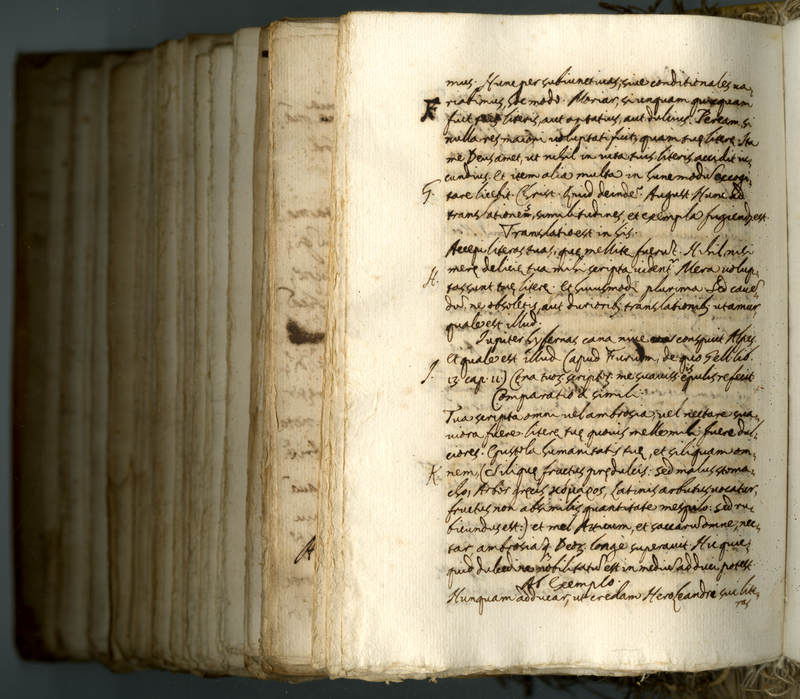 mus. Hunc per subiunctiuas, siue conditionales ua-
F riabimus, hoc modo. Moriar, si unquam quicquam
fuit tuis literis, aut optatius, aut dulcius. Peream, si
nulla res maiori uoluptati fuit, quam tuę literę. Ita
me Deus amet, ut nihil in uita tuis literis accidit iu-
cundius. Et item alia multa in hunc modũ excogi-
G. tare licebit. Christ. Quid deinde? August. Hunc ad
translationem, similitudines, et exempla fugiendũ est.
Translatio est in his.
Accepi literas tuas, quę mellitę fuerũt. Nihil nisi
H. merę delicię tua mihi scripta uident. Mera uolup-
tas sunt tuę literę. Et huiusmodi plurima. Sed cauen
dũ, ne obsoletis, aut durioribꝫ translationibꝫ utamur
quale est illud.
Iupiter hybernas cana niue conspuit Alpes.
Et quale est illud (apud Furium, de quo Gell. lib.
I. cap. 11.) Ena tuoꝝ scriptoꝝ me suauiss. epulis refecit
Comparatio à simili.
Tua scripta omni uel ambrosia, uel nectare sua-
uiora fuere. literę tuę quouis melle mihi fuere dul-
ciores. Epistola humanitatis tuę, et siliquam om-
K. nem, (Siliquę fructus prędulcis: sed malus stoma-
cho, Arbor gręcis κόμαρος, Latinis arbutus uocatur,
fructus non absimilis quantitate mespilo: sed ru-
bicundus est:) et mel Atticum, et saccarũ omne, nec-
tar, ambrosiã Deoꝝ longè superauit. Huc quic-
quid dulcedine nobilitatũ est in mediũ adduci potest.
Ab Exemplo.
Nunquam adducar, ut credam Hero Leandri sui lite-
ras